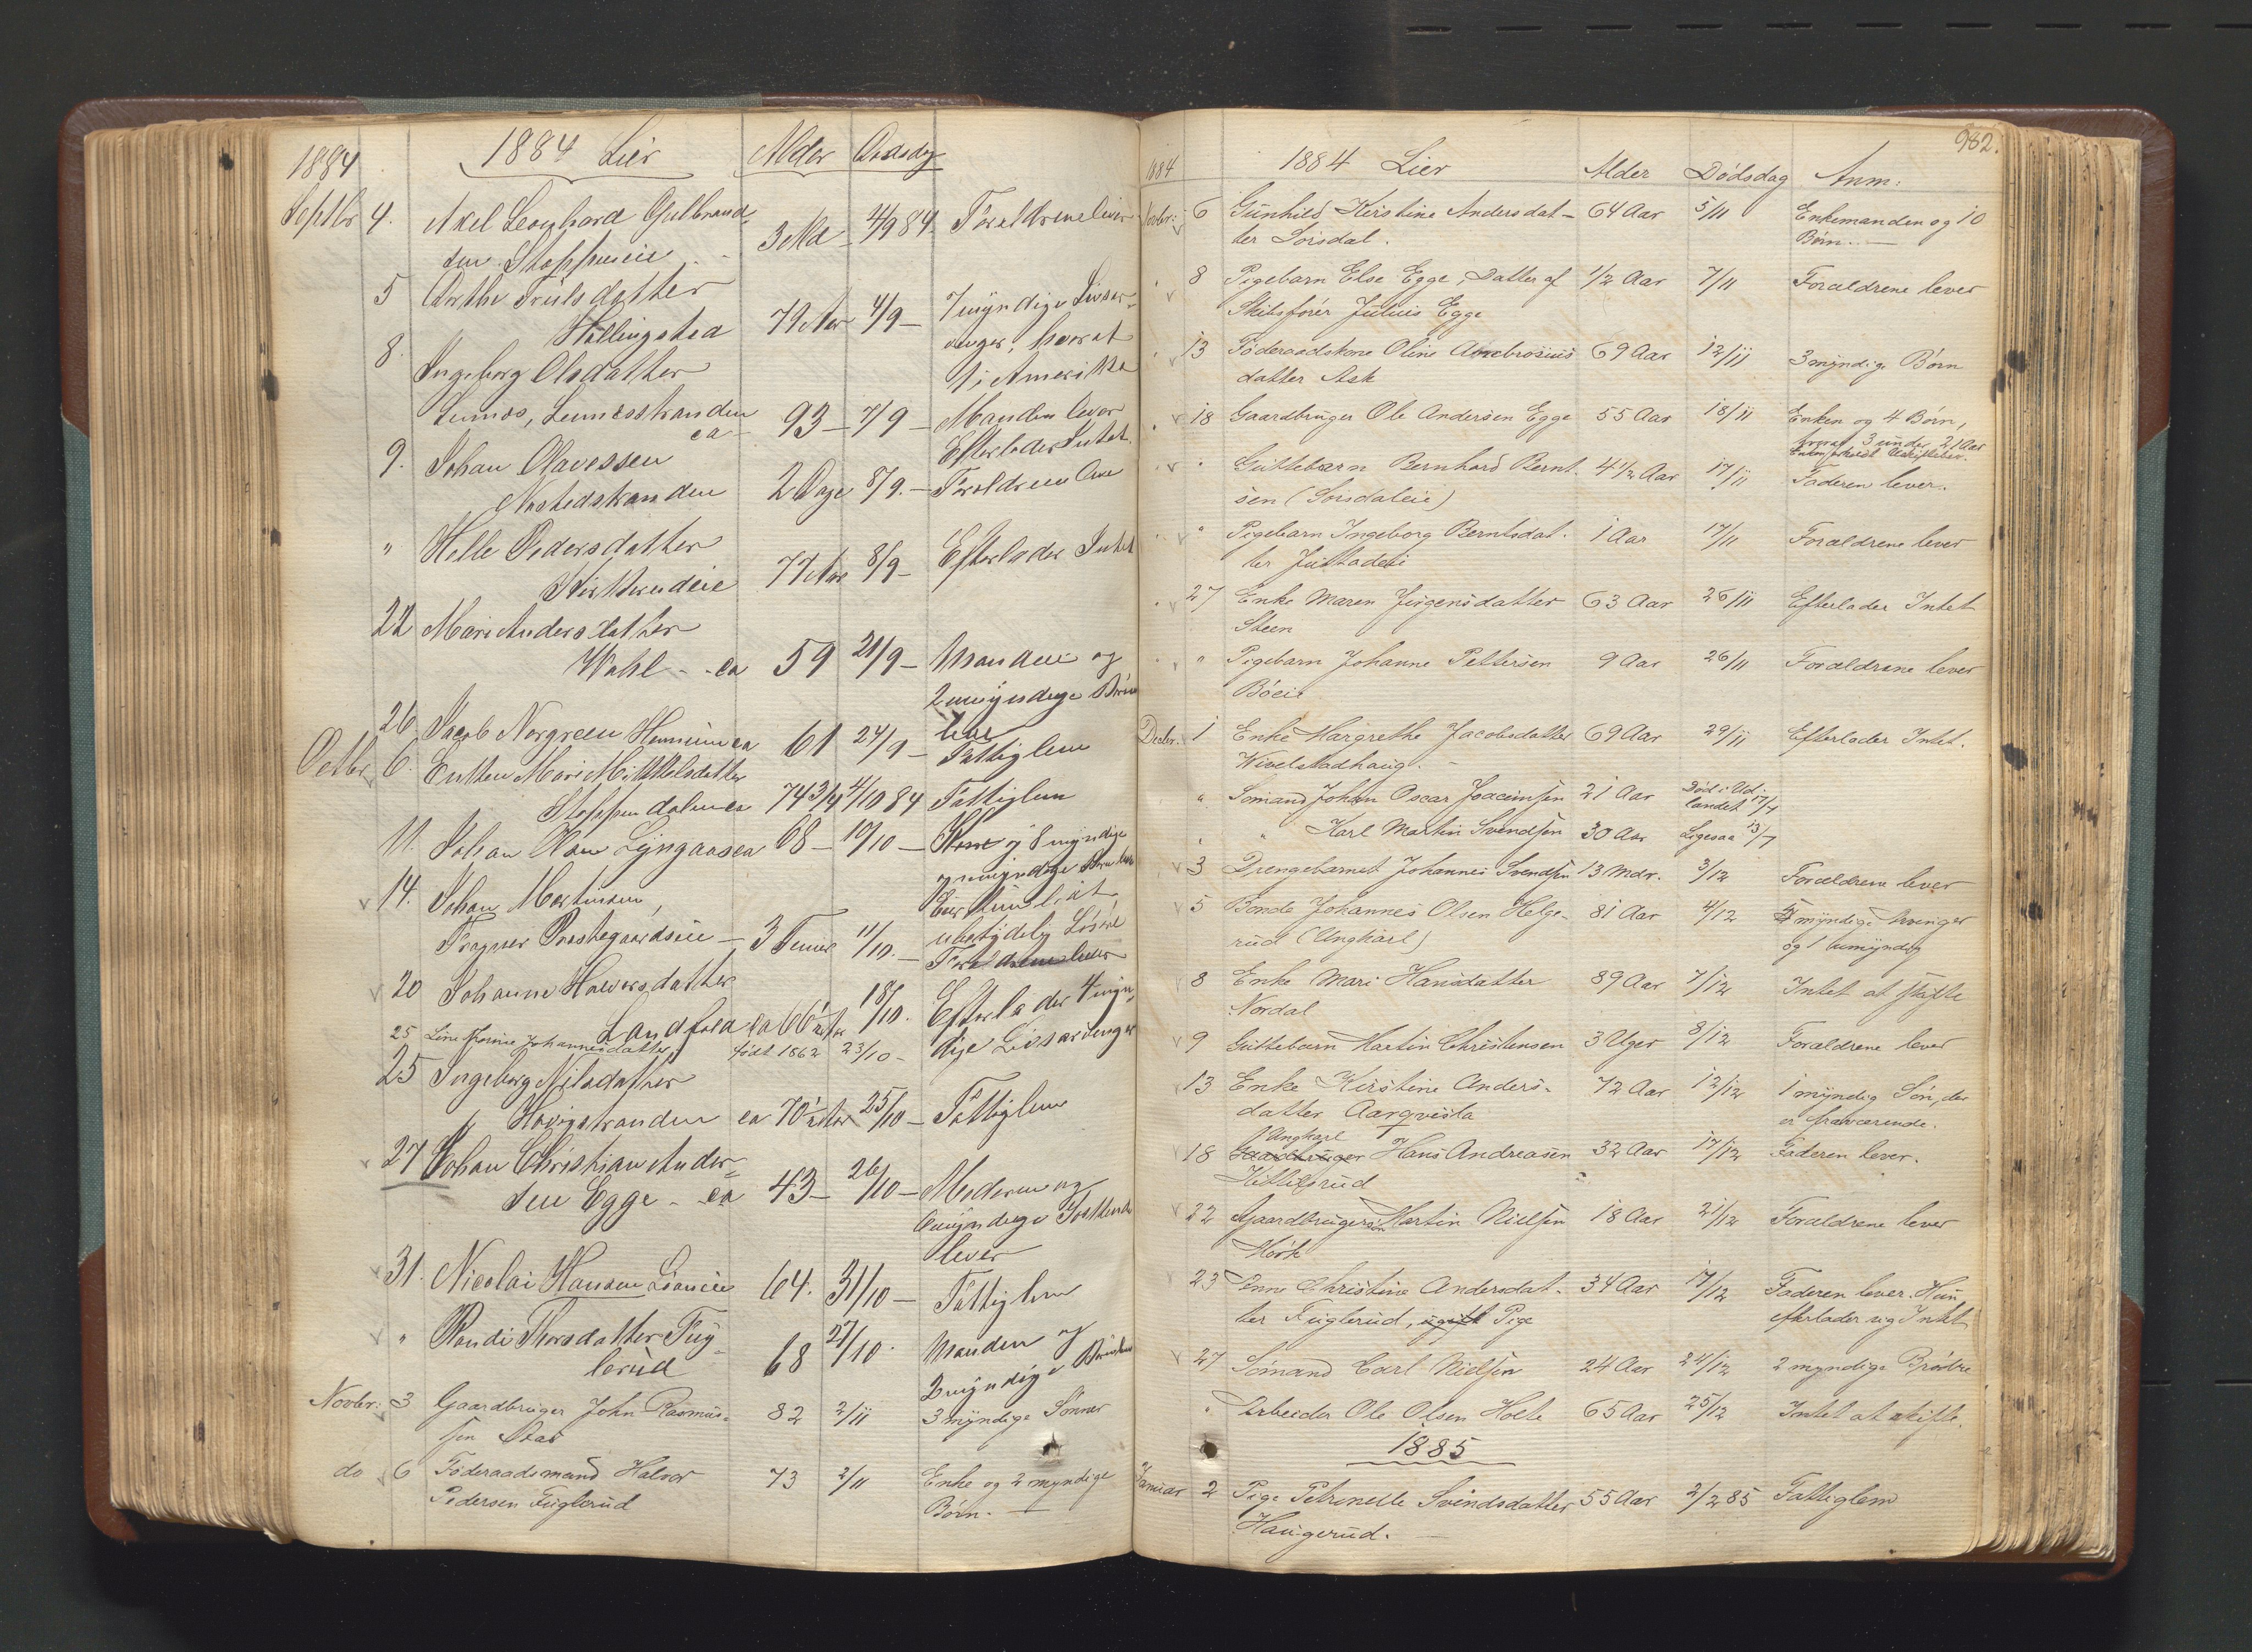 1884
1884 Lier
Alder
Dødsdg
Septbr 4. Axel Leonhard Gulbrand-
sen Stoppeneie 3 Md 4/9 84. Forældrene lever
5 Dorthe Trulsdatter
Hallingstad 79 Aar 4/9 — 7 myndige Livsar-
vinger, hvoraf
1 i Amerika
8. Ingeborg Olsdatter
Lumes, Lumesstranden
ca 93 — 7/9 — Manden lever
Efterlader Intet
9. Johan Olavessen
Nøstedstranden 2 Dage 8/9. — Forældrene
" Helle Pedersdatter
Kirkerudeie 77 Aar 8/9 — Efterlader Intet
22 Mari Andersdatter
Wahl — ca 59 21/9 — Manden og
2 umyndige Børn
lever
26. Jacob Norgreen ca 61 24/9 — Fattiglem
Octbr 6. Enken Mari Mikkelsdatter
Stoppendalen ca 74 3/4 4/10 84 Fattiglem
11. Johan Olsen Lyngaas ca 68 — 10/10 — Kone og 8 myndige
og umyndige Børn lever
14. Johan Martinsen,
Fragner Præstegaardseie — 3 Timer 11/10. —
ubetydelig Løsøre
Forældrene lever
20 Johanne Halvorsdatter
Landfald ca 66 Aar 18/10. Efterlader 4 myn-
dige Livsarvinger
25 Line Johannesdatter, født 1862 23/10 —
25 Ingeborg Nilsdatter
Høvigstranden ca 70 Aar 25/10 — Fattiglem
27 Johan Christian Ander-
sen Egge — ca 43 — 26/10 — Moderen og
myndige
lever
31. Nicolai Hansen Lianeie 64. 31/10 — Fattiglem
" Randi Thorsdatter Fug-
lerud 68 27/10. Manden og
2 myndige Børn
Novbr: 3 Gaardbruger John Rasmus-
sen Stab 82 2/11 3 myndige Sønner
do 6 Føderaadsmand Halvor
Pedersen Fuglerud 73 2/11 Enke og 2 myndige
Børn. —
982.
1884
1884 Lier Alder Dødsdag Anm:
Novbr: 6 Gunhild Kirstine Andersdat-
ter Sørsdal. 64 Aar 5/11 Enkemanden og 10
Børn. —
8 Pigebarn Else Egge, Datter af
Skibsfører Julius Egge 1/2 Aar 7/11 Forældrene lever
13 Føderaadskone Oline Ambrosius
datter Ask 69 Aar 12/11 3 myndige Børn
18 Gaardbruger Ole Andersen Egge 55 Aar 18/11 Enken og 4 Børn,
hvoraf 3 under 21 Aar
" Guttebarn Bernhard Bernt-
sen (Sørsdaleie) 4 1/2 Aar 17/11 Faderen lever.
" Pigebarn Ingeborg Berntsdat-
ter 1 Aar 17/11 Forældrene lever
27 Enke Maren Jørgensdatter
Steen 63 Aar 26/11 Efterlader Intet
" Pigebarn Johanne Pettersen
Bøeie 9 Aar 26/11 Forældrene lever
Decbr. 1 Enke Margrethe Jacobsdatter
Wivelstadhaug. — 69 Aar 29/11 Efterlader Intet.
" Sømand Johan Oscar Joacimsen 21 Aar Død i Ud-
landet 17/7
" Karl Martin Svendsen 30 Aar Ligesaa 13/7
3 Drengebarnet Johannes Svendsen 13 Mdr. 3/12 Forældrene lever
5 Bonde Johannes Olsen Helge-
rud (Ungkarl) 81 Aar 4/12 5 myndige Arvinger
og 1 umyndig
8 Enke Mari Hansdatter
Nordal 89 Aar 7/12 Intet at skifte
9 Guttebarn Martin Christensen 3 Uger 8/12 Forældrene lever
13 Enke Kirstine Anders-
datter Aarqvisla 72 Aar 12/12 1 myndig Søn, der
er fraværende.
Ungkarl
18 Gaardbruger Hans Andreasen
Killilsrud 32 Aar 17/12 Faderen lever.
22 Gaardbrugersøn Martin Nielsen
Mørk 18 Aar 21/12 Forældrene lever
23 Anne Christine Andersdat-
ter Fuglerud, ugift Pige 34 Aar 17/12 Faderen lever. Hun
efterlader sig Intet
27 Sømand Carl Nielsen 24 Aar 24/12 2 myndige Brødre
" Arbeider Ole Olsen Holte 65 Aar 25/12 Intet at skifte.
1885
Januar 2 Pige Petronelle Svendsdatter
Haugerud. — 55 Aar 2/2 85 Fattiglem